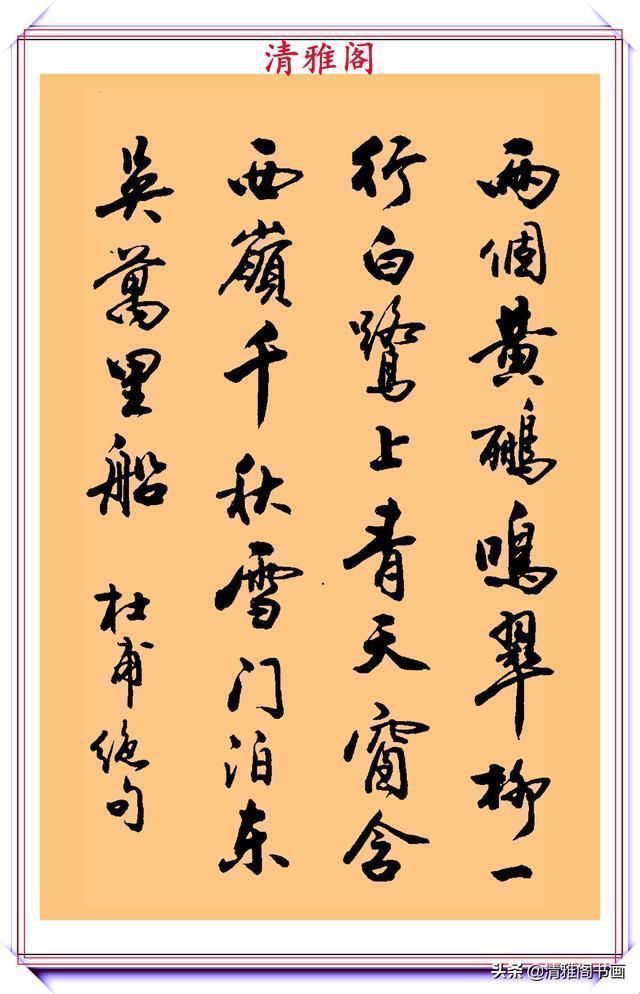 清雅阁
两個黄鸝鳴翠柳一
行白鹭上青天窗含
西嶺千秋雪门泊东
吴萬里船 杜甫绝句
头条 @清雅阁书画